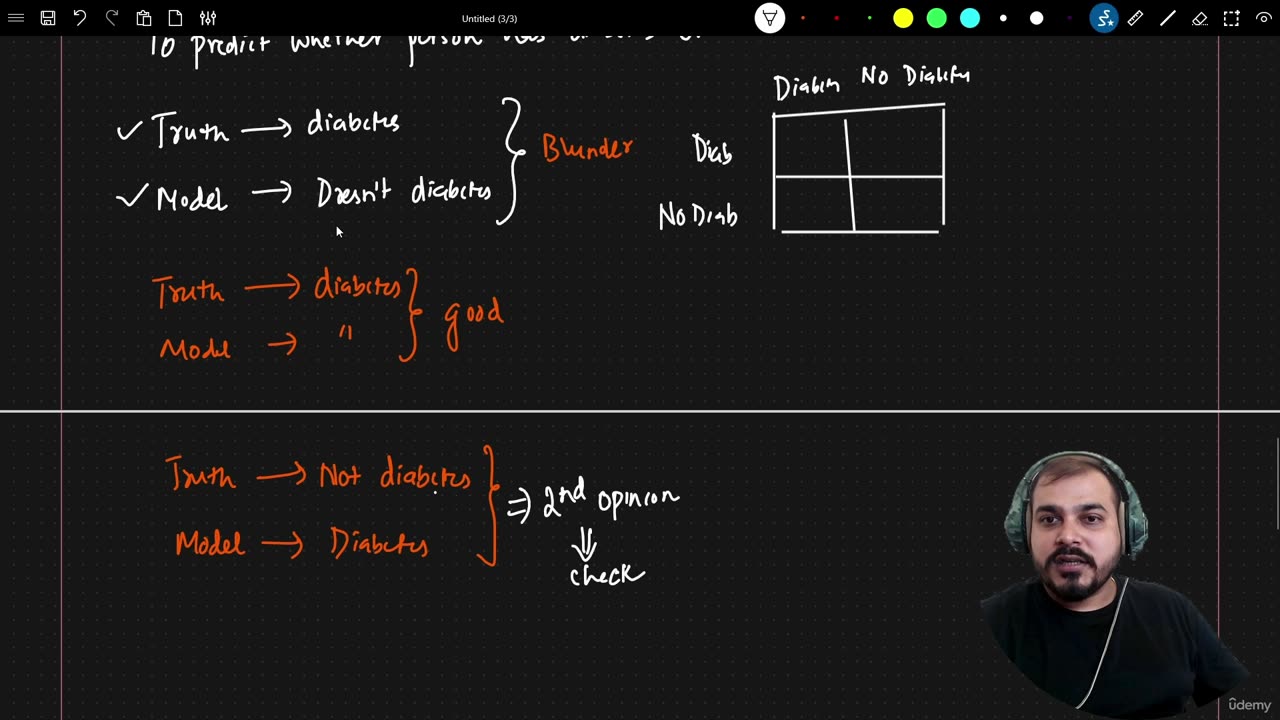 Untitled (3/3)
To predict whether person has
Diabetes No Diabetes
✓ Truth → diabetes
Blunder
Diab
✓ Model → Doesn't diabetes
No Diab
Truth → diabetes
good
Model → "
Truth → Not diabetes
⇒ 2nd opinion
Model → Diabetes
⇓
check
ûdemy